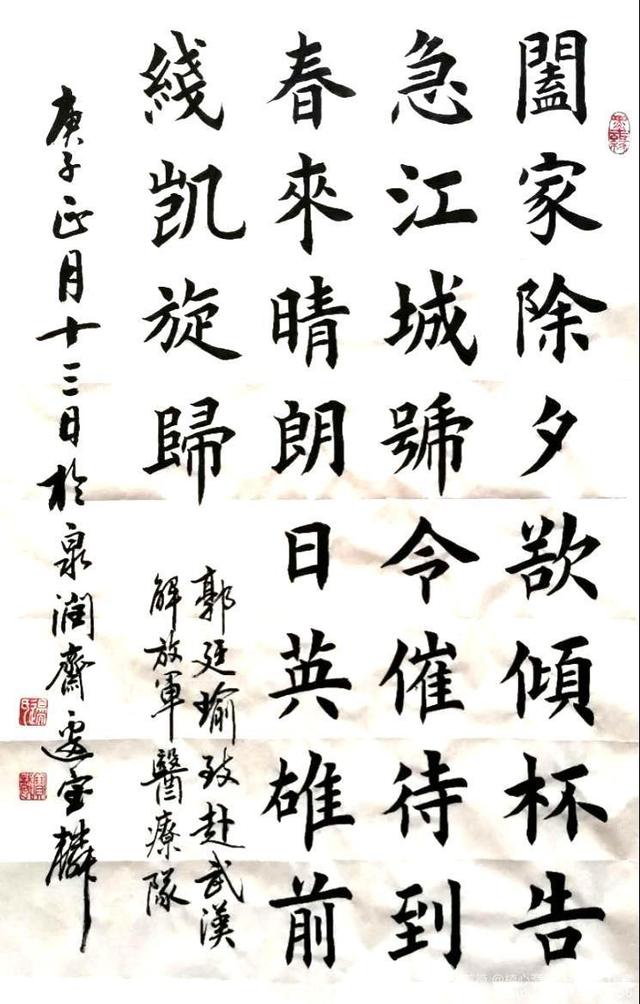 闔家除夕欲傾杯告
急江城號令催待到
春來晴朗日英雄前
綫凱旋歸
郭廷瑜致赴武漢
解放軍醫療隊
庚子正月十三日於泉潤齋邊宝麟